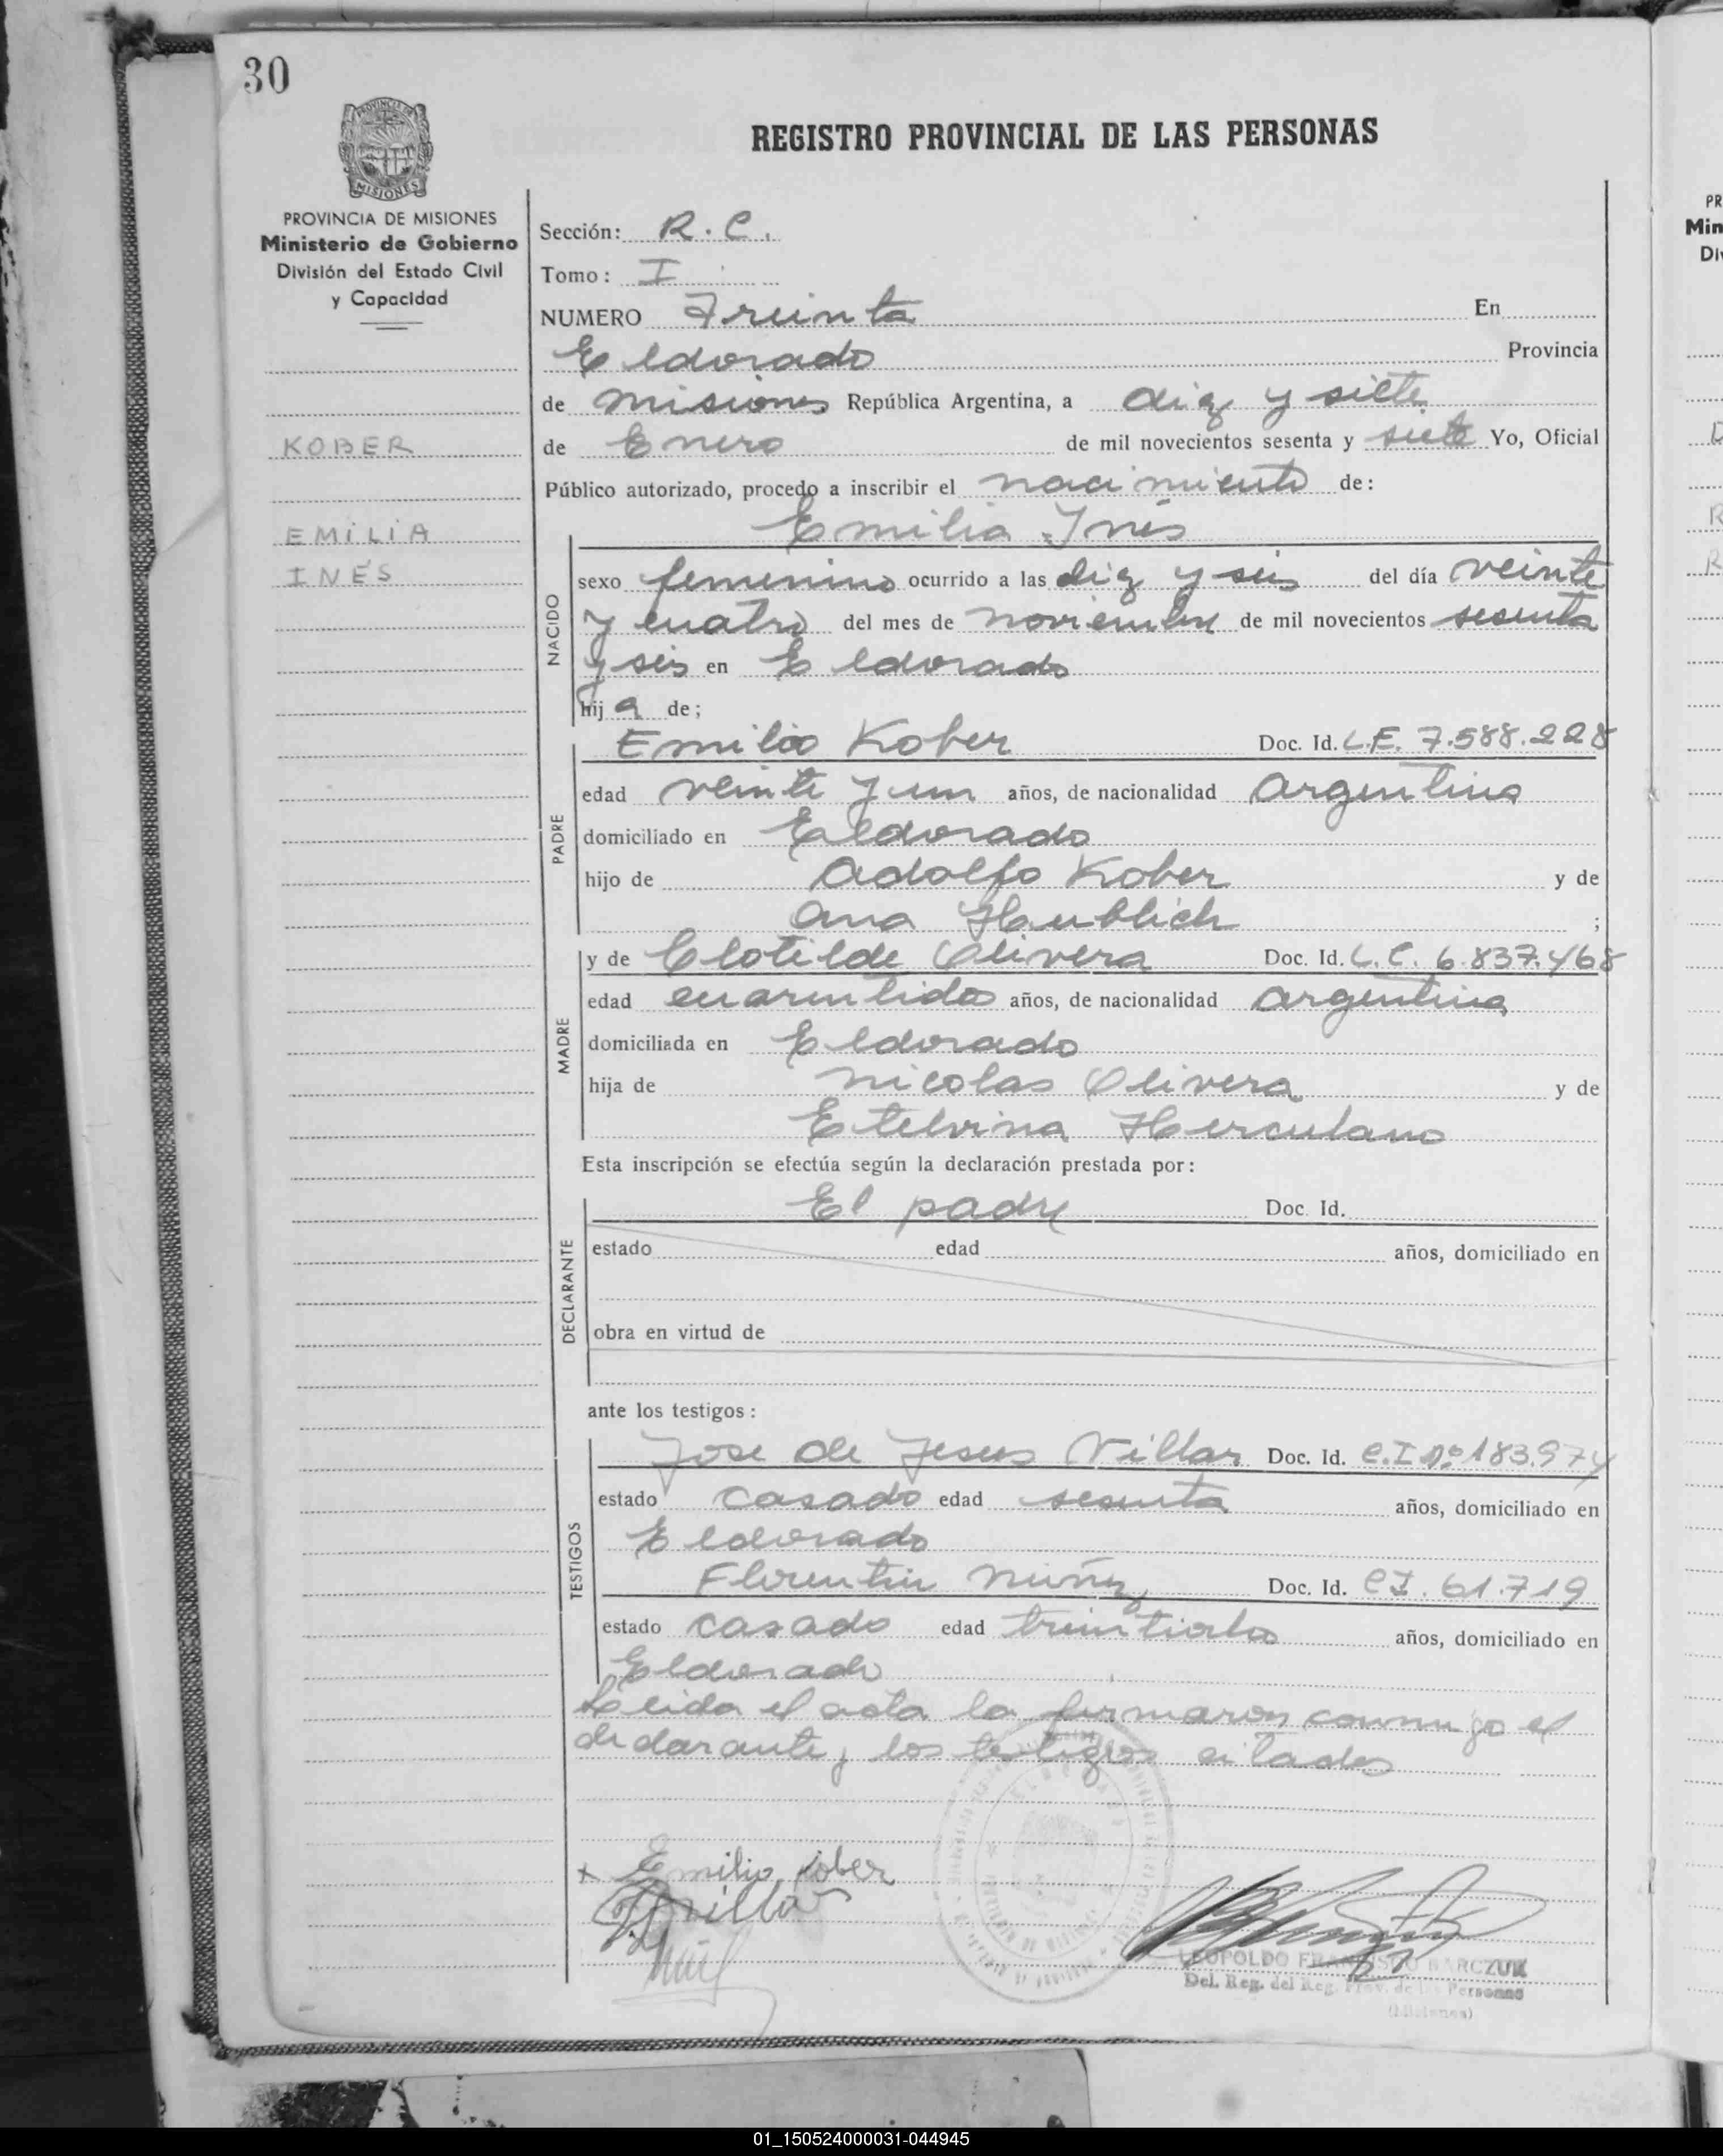 30
PROVINCIA DE
MISIONES
PROVINCIA DE MISIONES
Ministerio de Gobierno
División del Estado Civil
y Capacidad
KOBER
EMiLiA
INÉS
REGISTRO PROVINCIAL DE LAS PERSONAS
Sección: R. C.
Tomo: I
NUMERO Treinta En
Eldorado Provincia
de Misiones República Argentina, a diez y siete
de Enero de mil novecientos sesenta y siete Yo, Oficial
Público autorizado, procedo a inscribir el nacimiento de:
Emilia Inés
NACIDO
sexo femenino ocurrido a las diez y seis del día veinte
y cuatro del mes de noviembre de mil novecientos sesenta
y seis en Eldorado
hija de;
PADRE
Emilio Kober Doc. Id. L.E. 7.588.228
edad veinte y un años, de nacionalidad Argentina
domiciliado en Eldorado
hijo de Adolfo Kober y de
Ana Haublich ;
MADRE
y de Clotilde Olivera Doc. Id. L.C. 6.837.468
edad cuarentidos años, de nacionalidad argentina
domiciliada en Eldorado
hija de Nicolas Olivera y de
Etelvina Herculano
Esta inscripción se efectúa según la declaración prestada por:
DECLARANTE
El padre Doc. Id.
estado edad años, domiciliado en
obra en virtud de
ante los testigos:
TESTIGOS
Jose de Jesus Villar Doc. Id. C.I nº 183.974
estado casado edad sesenta años, domiciliado en
Eldorado
Florentin Nuñez Doc. Id. CI. 61.719
estado casado edad años, domiciliado en
Eldorado
Leida el acta la firmaron conmigo el
declarante y los testigos citados
x Emilio Kober
JVillar
LEOPOLDO FRANCISCO BARCZUK
Del. Reg. del Reg. Prov. de las Personas
(Misiones)
PR
Min
Di
01_150524000031-044945